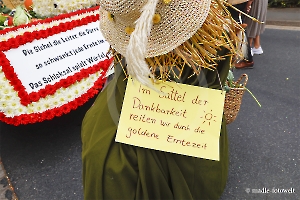 Die Sichel die Leiter, die Füsse
so schwankt jede Ernte im
Das Schicksal spült Würfel
Im Sattel der
Dankbarkeit
reiten wir durch die
goldene Erntezeit
© madle-fotowelt